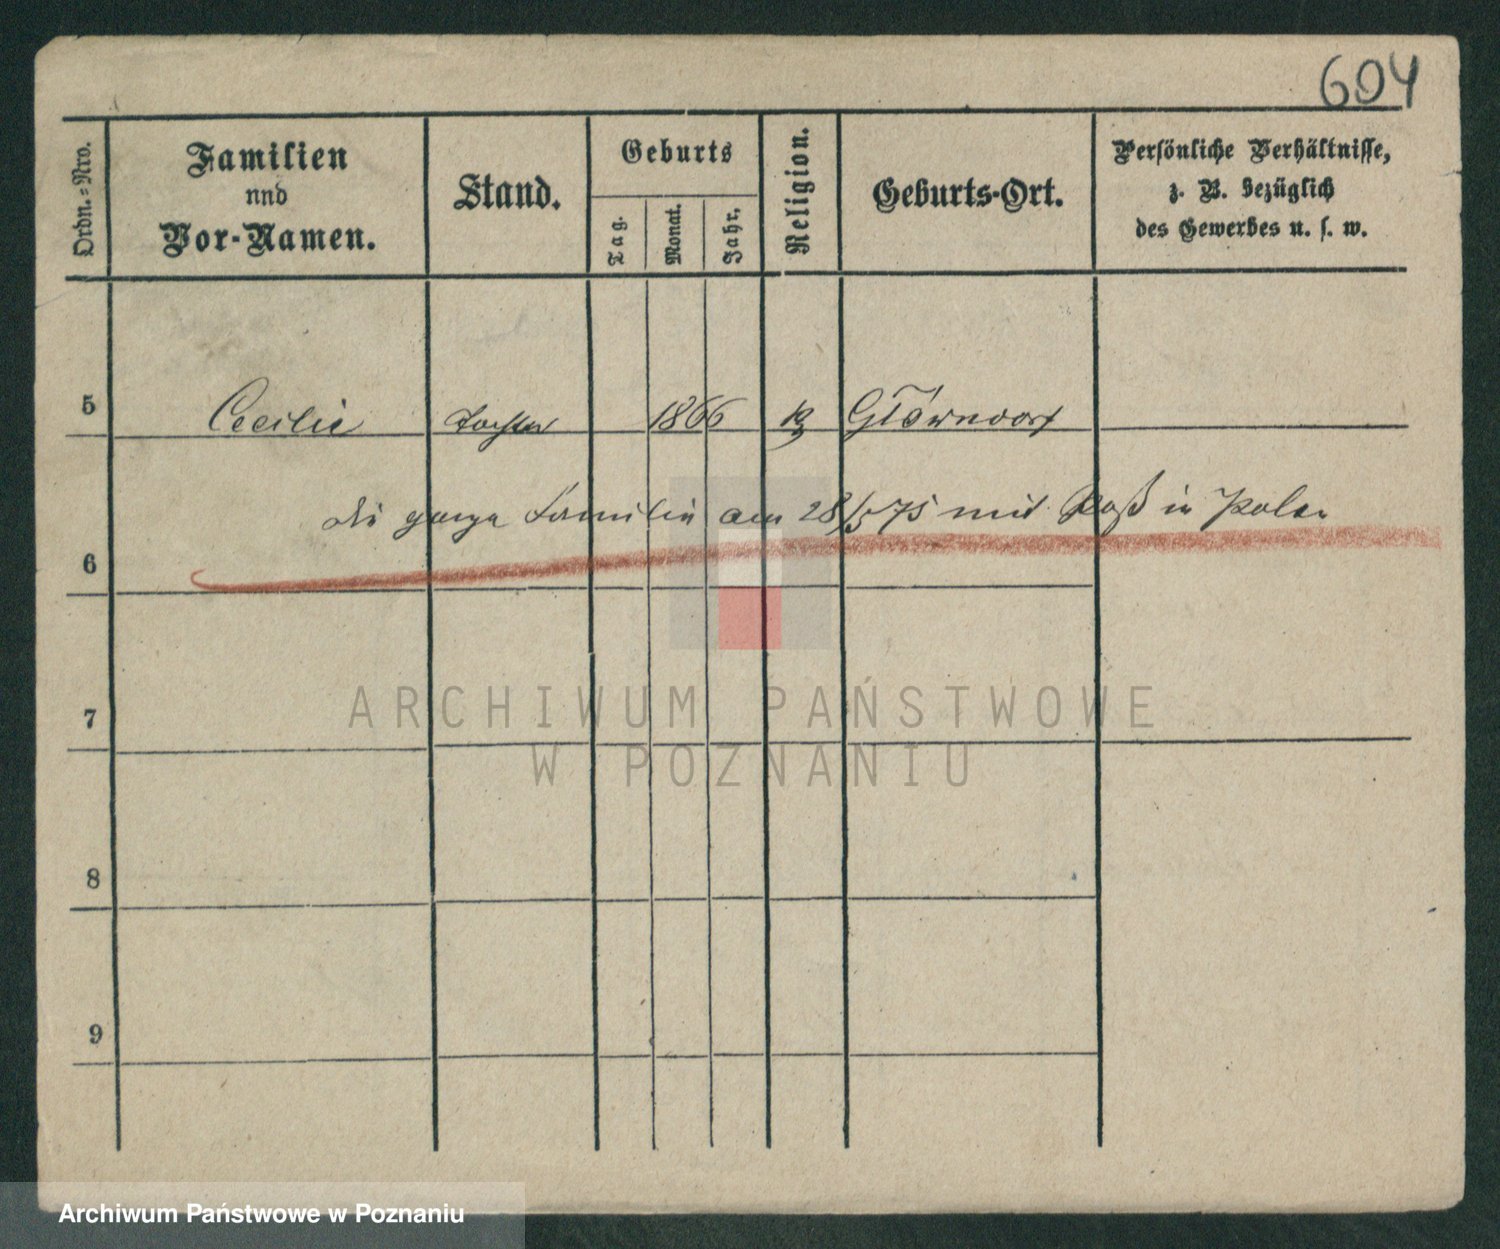 604
Ordn.-Nro.
Familien
und
Vor-Namen.
Stand.
Geburts
Tag.
Monat.
Jahr.
Religion.
Geburts-Ort.
Persönliche Verhältnisse,
z. B. bezüglich
des Gewerbes u. s. w.
5 Cecilie Tochter 1866 k
die ganze Familie am 28/5 75 mit Paß in Polen
6
7
8
9
ARCHIWUM PAŃSTWOWE
W POZNANIU
Archiwum Państwowe w Poznaniu